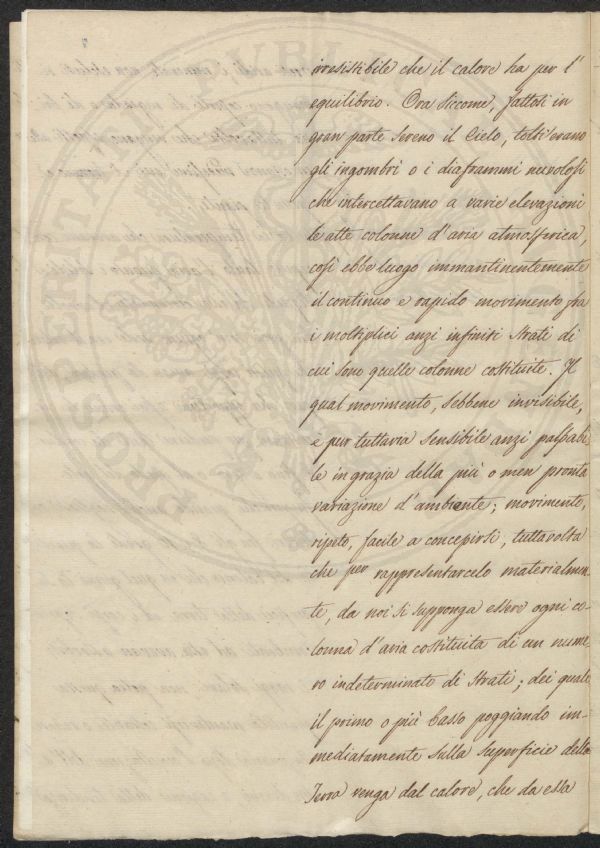 irresistibile che il calore ha per l'
equilibrio. Ora siccome, fattosi in
gran parte sereno il Cielo, tolti erano
gli ingombri o i diaframmi nevolosi
che intercettavano a varie elevazioni
le alte colonne d'aria atmosferica,
così ebbe luogo immantinentemente
il continuo e rapido movimento fra
i moltiplici anzi infiniti strati di
cui sono quelle colonne costituite. Il
qual movimento, sebbene invisibile,
è pur tuttavia sensibile anzi palpabi
le in grazia della più o men pronta
variazione d'ambiente; movimento,
ripeto, facile a concepirsi, tuttavolta
che per rappresentarcelo materialmen
te, da noi si supponga essere ogni co
lonna d'aria costituita di un nume
ro indeterminato di strati; dei quali
il primo o più basso poggiando im-
mediatamente sulla superficie della
Terra venga dal calore, che da essa